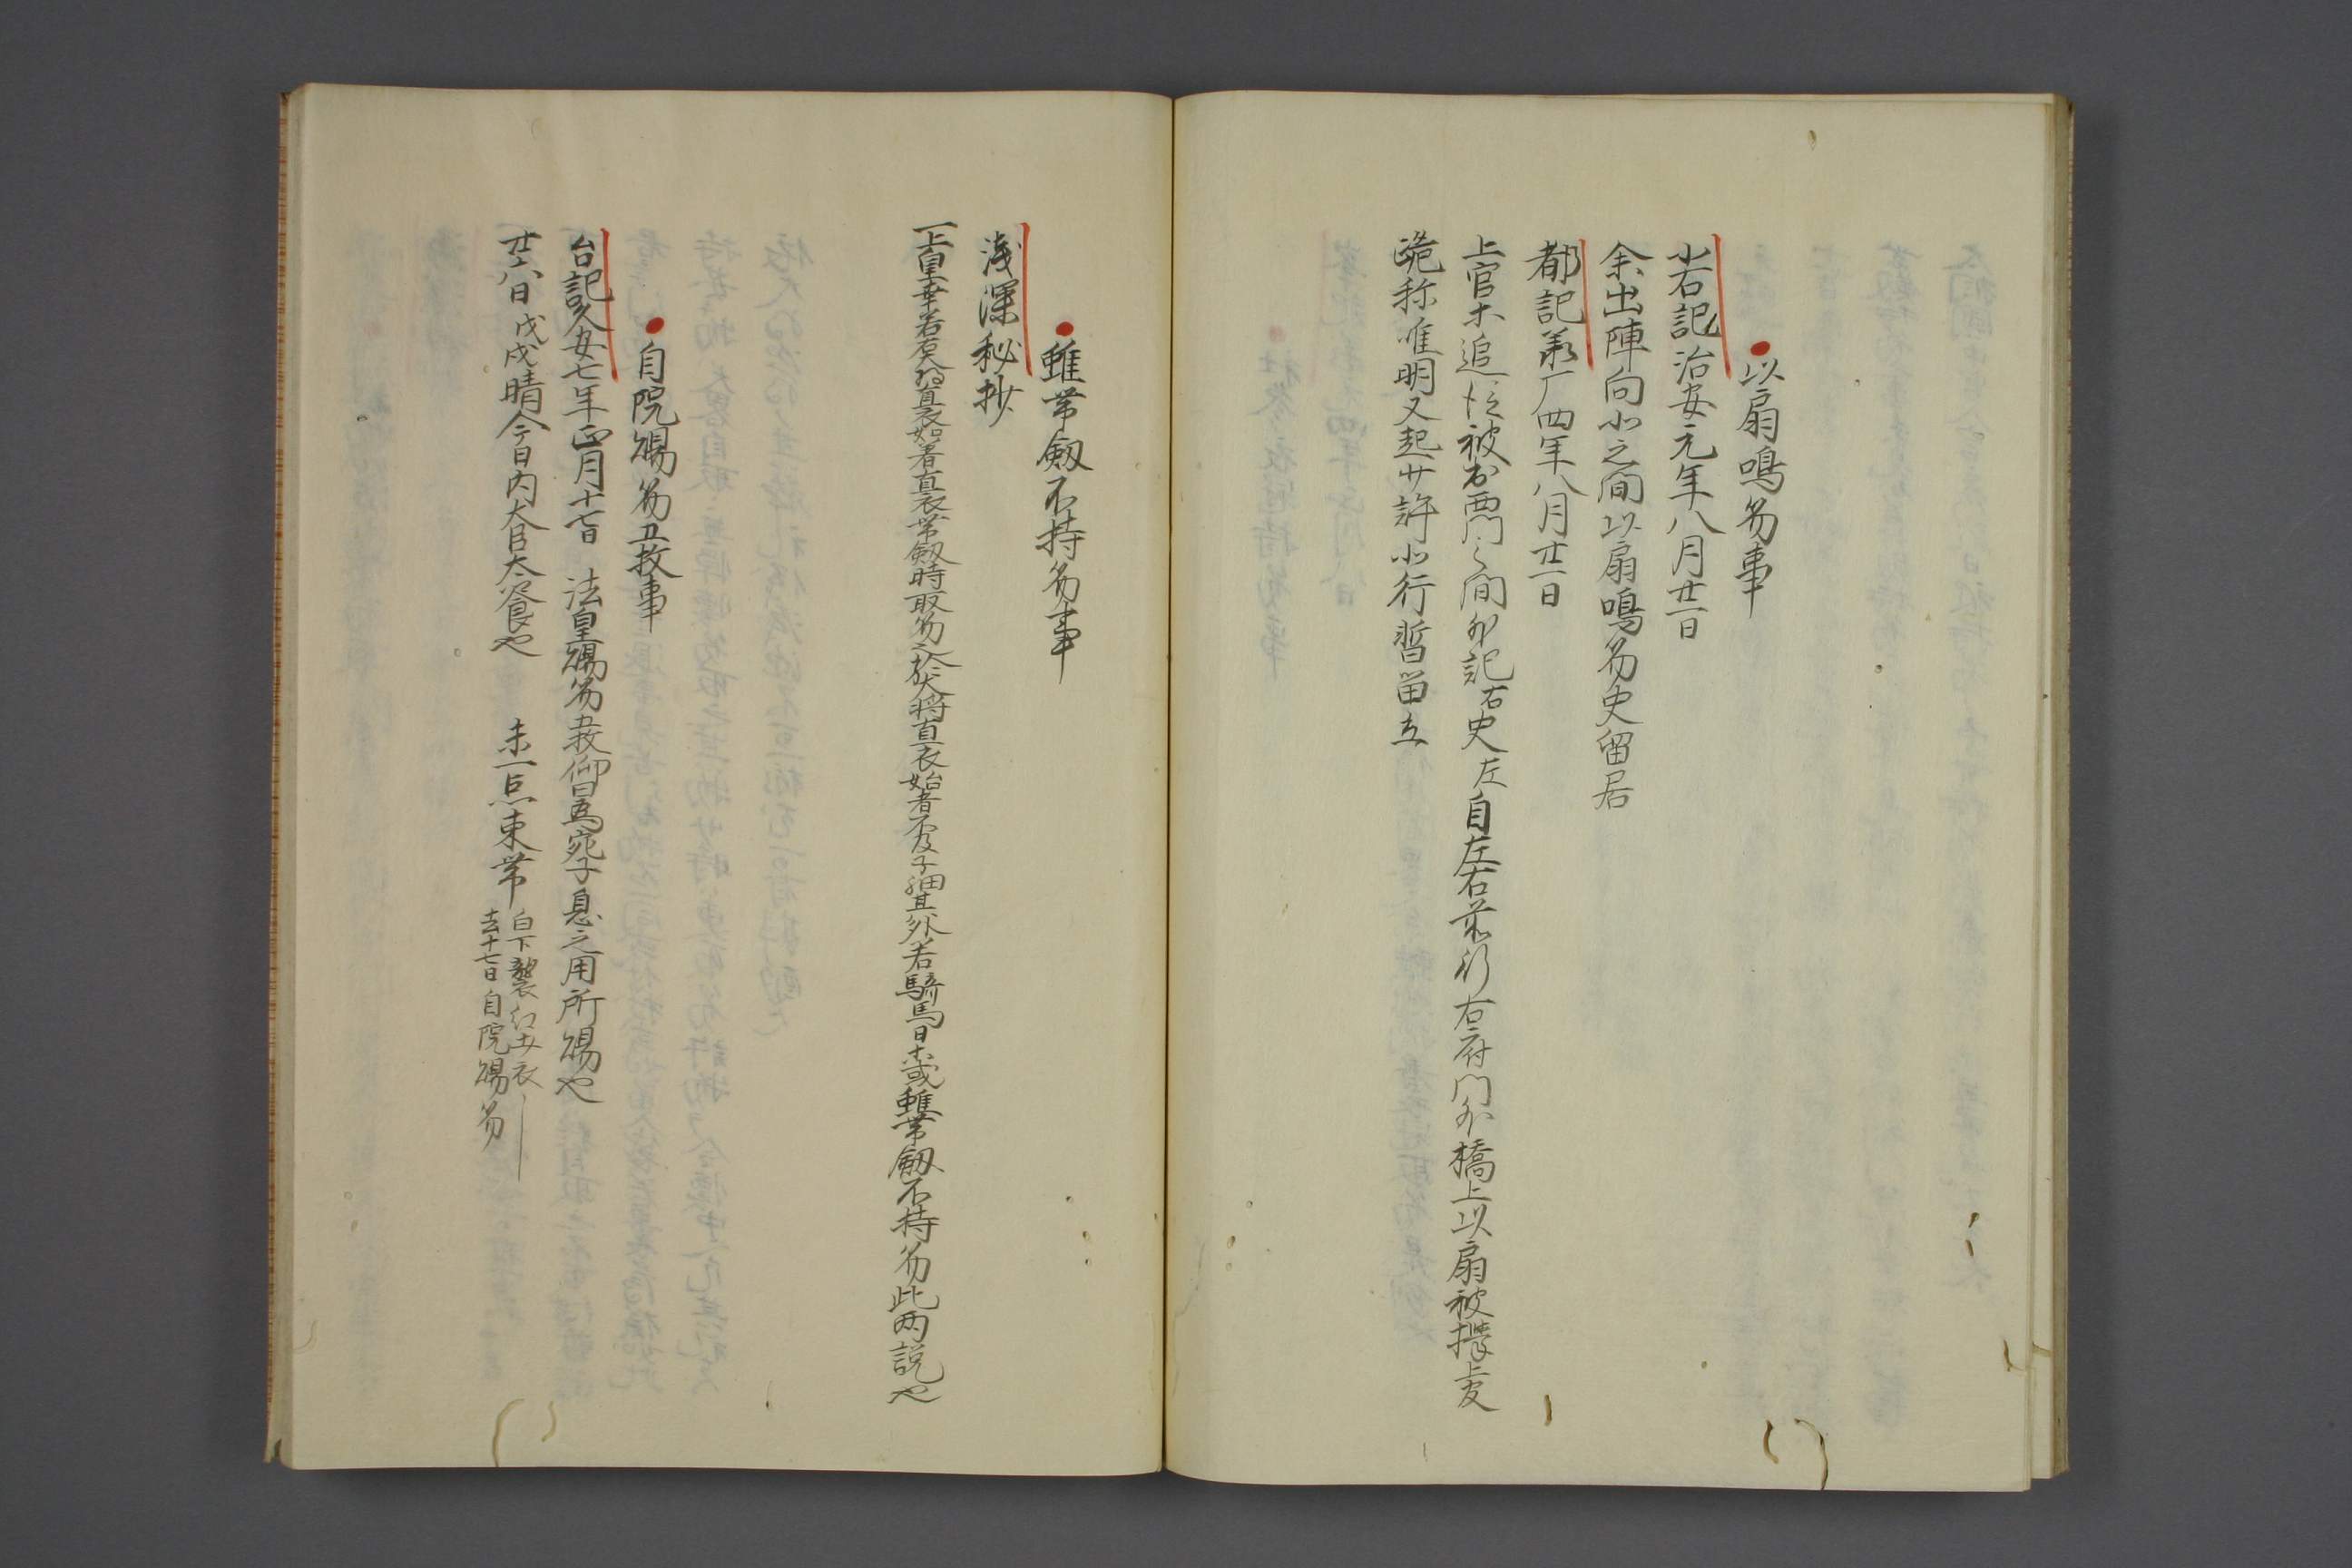 以扇鳴笏事
小右記治安元年八月廿一日
余出陣向北之間以扇鳴笏史留居
都記承厂四年八月廿一日
上官木追被出西門之間外記右史左自左右前行右府門外橋上以扇被
跪称唯明又起廿許北行暫留立
雖帯釼不持笏事
浅深秘抄
一上皇幸若直衣始着直衣帯釼時取笏之於大将直衣始者不及子細其外若騎馬日或雖帯釼不持笏此両説也
自院賜笏五枚事
台記久安七年正月十七日　法皇賜笏五枚仰曰為宛子息之用所賜也
廿六日戊戌晴今日内大臣大饗也　未一点束帯
白下襲
去十七日自院賜笏